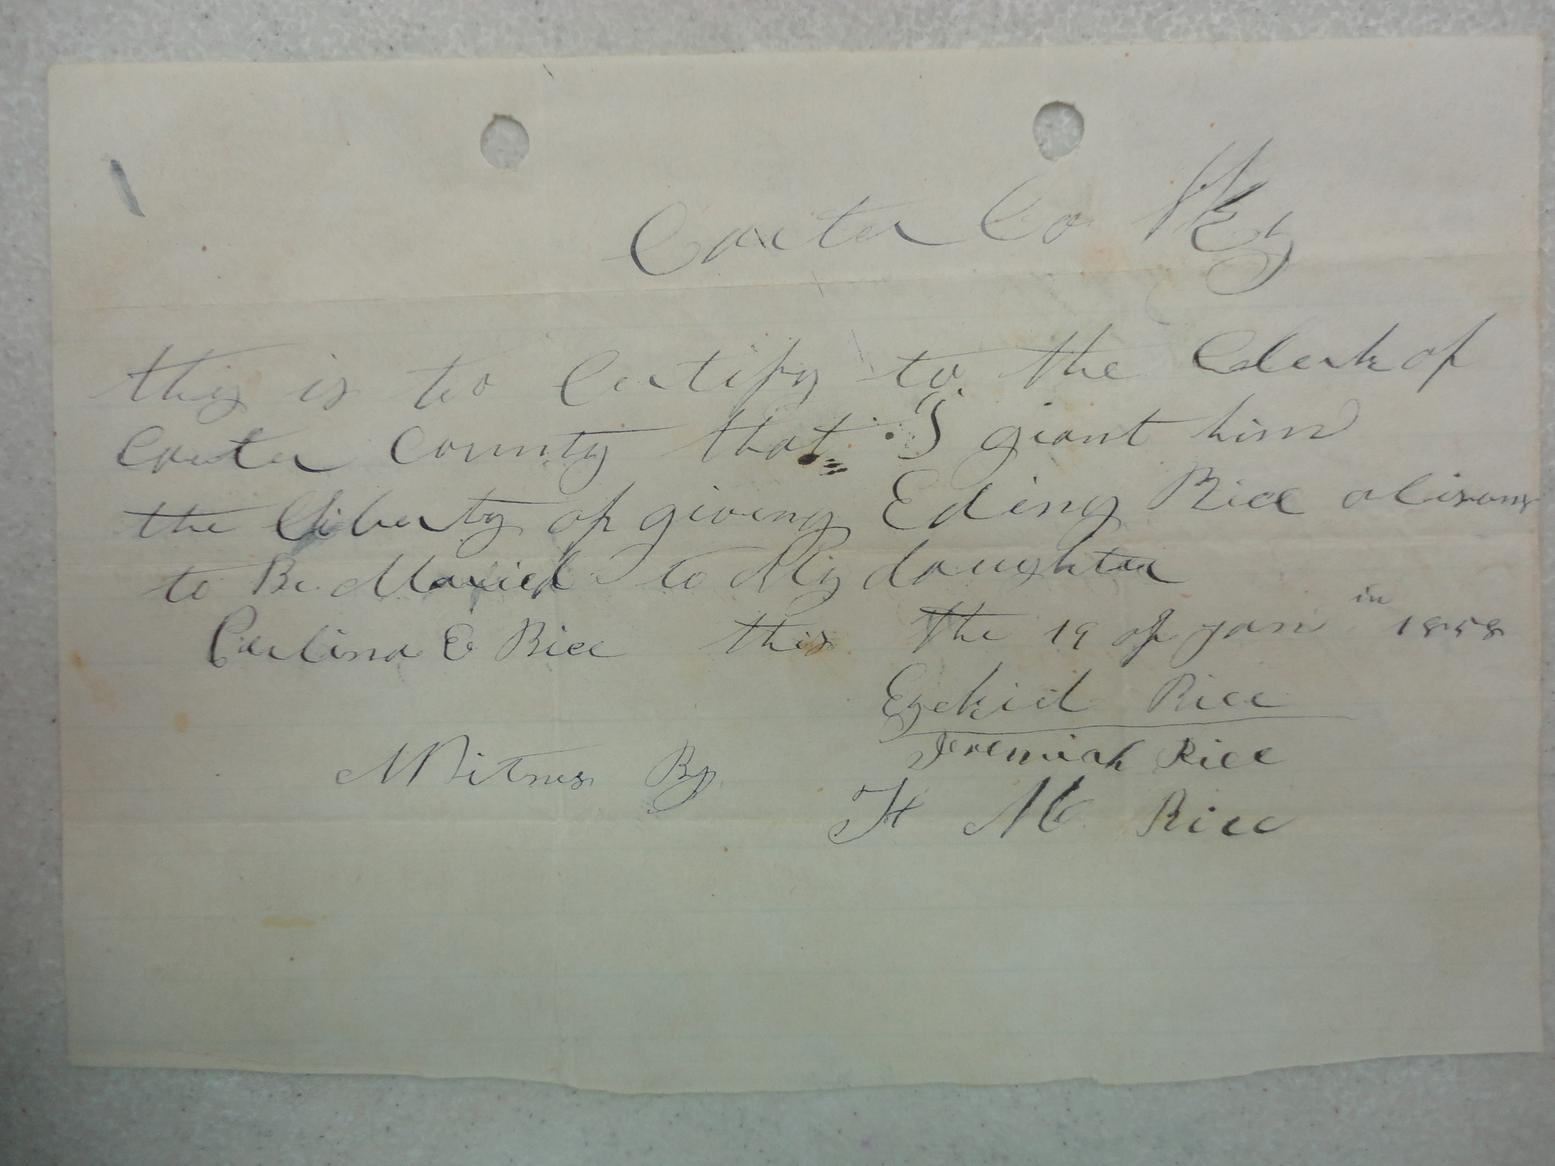 Carter Co Ky
this is to Certify to the Clerk of
Carter County that I grant him
the Liberty of giving Eding Rice a lisons
to Be Maried to My daughter
E Rice this the 19 of jan in 1858
Ezekiel Rice
Jeremiah Rice
Witness By
H M Rice